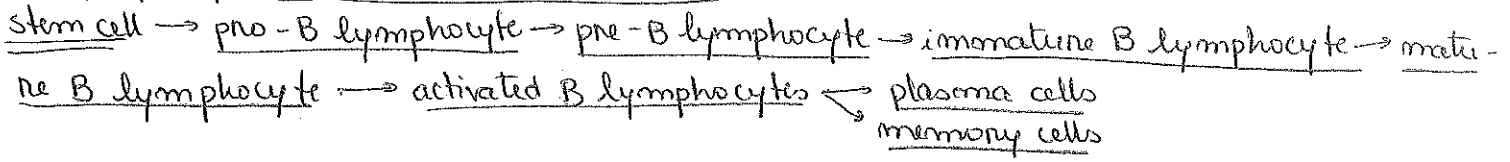 stem cell → pro-B lymphocyte → pre-B lymphocyte → immature B lymphocyte → matu-
re B lymphocyte → activated B lymphocytes → plasma cells
memory cells